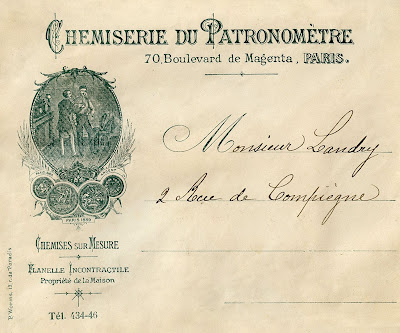 CHEMISERIE DU PATRONOMÈTRE
70, Boulevard de Magenta, PARIS.
Monsieur Landry
2 Rue de Compiègne
CHEMISES SUR MESURE
FLANELLE INCONTRACTILE
Propriété de la Maison
Tél. 434-46